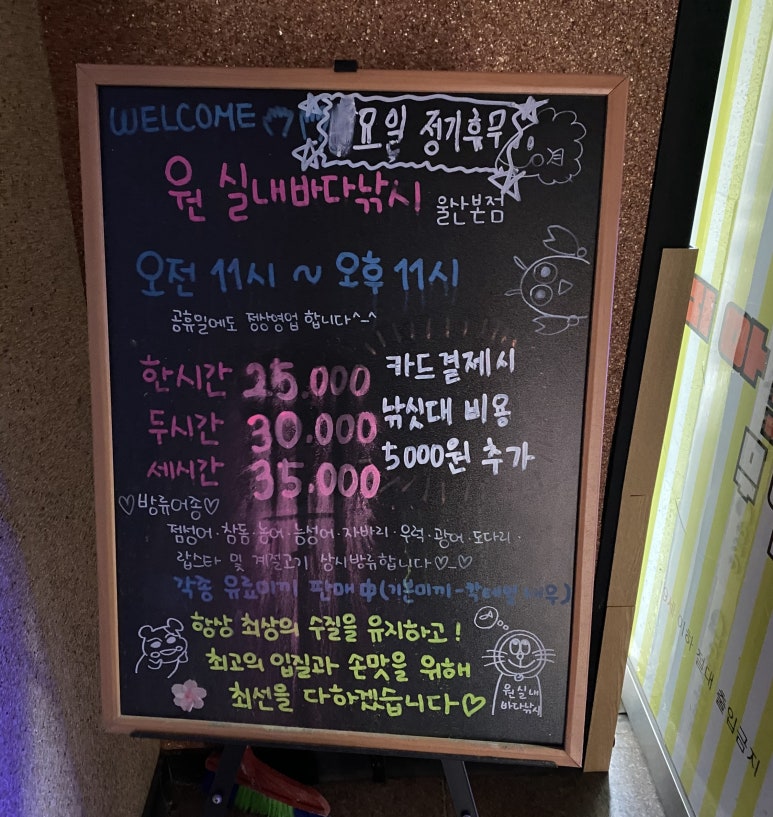 WELCOME
요일 정기휴무
원 실내바다낚시 울산본점
오전 11시 ~ 오후 11시
공휴일에도 정상영업 합니다^_^
한시간 25.000
두시간 30.000
세시간 35.000
카드결제시
낚싯대 비용
5000원 추가
♡방류어종♡
점성어·참돔·농어·능성어·자바리·우럭·광어·도다리·
랍스타 및 계절고기 상시방류합니다♡_♡
각종 유료미끼 판매中(기본미끼-칵테일새우)
항상 최상의 수질을 유지하고!
최고의 입질과 손맛을 위해
최선을 다하겠습니다♡
원실내
바다낚시
절대 출입금지